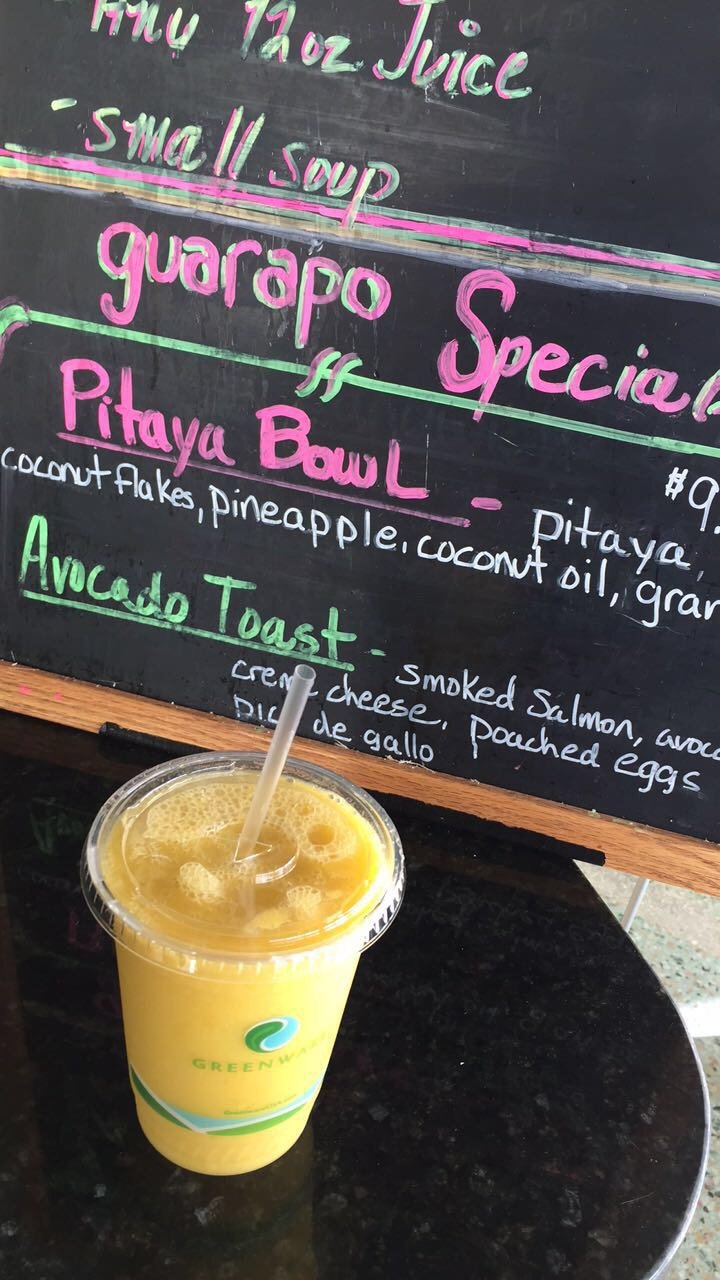 - Any 12 oz Juice
- small soup
guarapo Special
Pitaya Bowl - $9.
pitaya,
coconut flakes, pineapple, coconut oil, gran
Avocado Toast - smoked Salmon, avoca
creme cheese, poached eggs
pico de gallo
GREENWARE